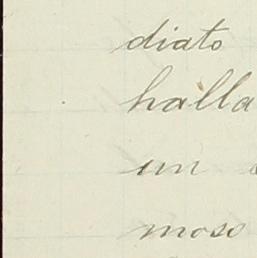 diato
halla
un
moso